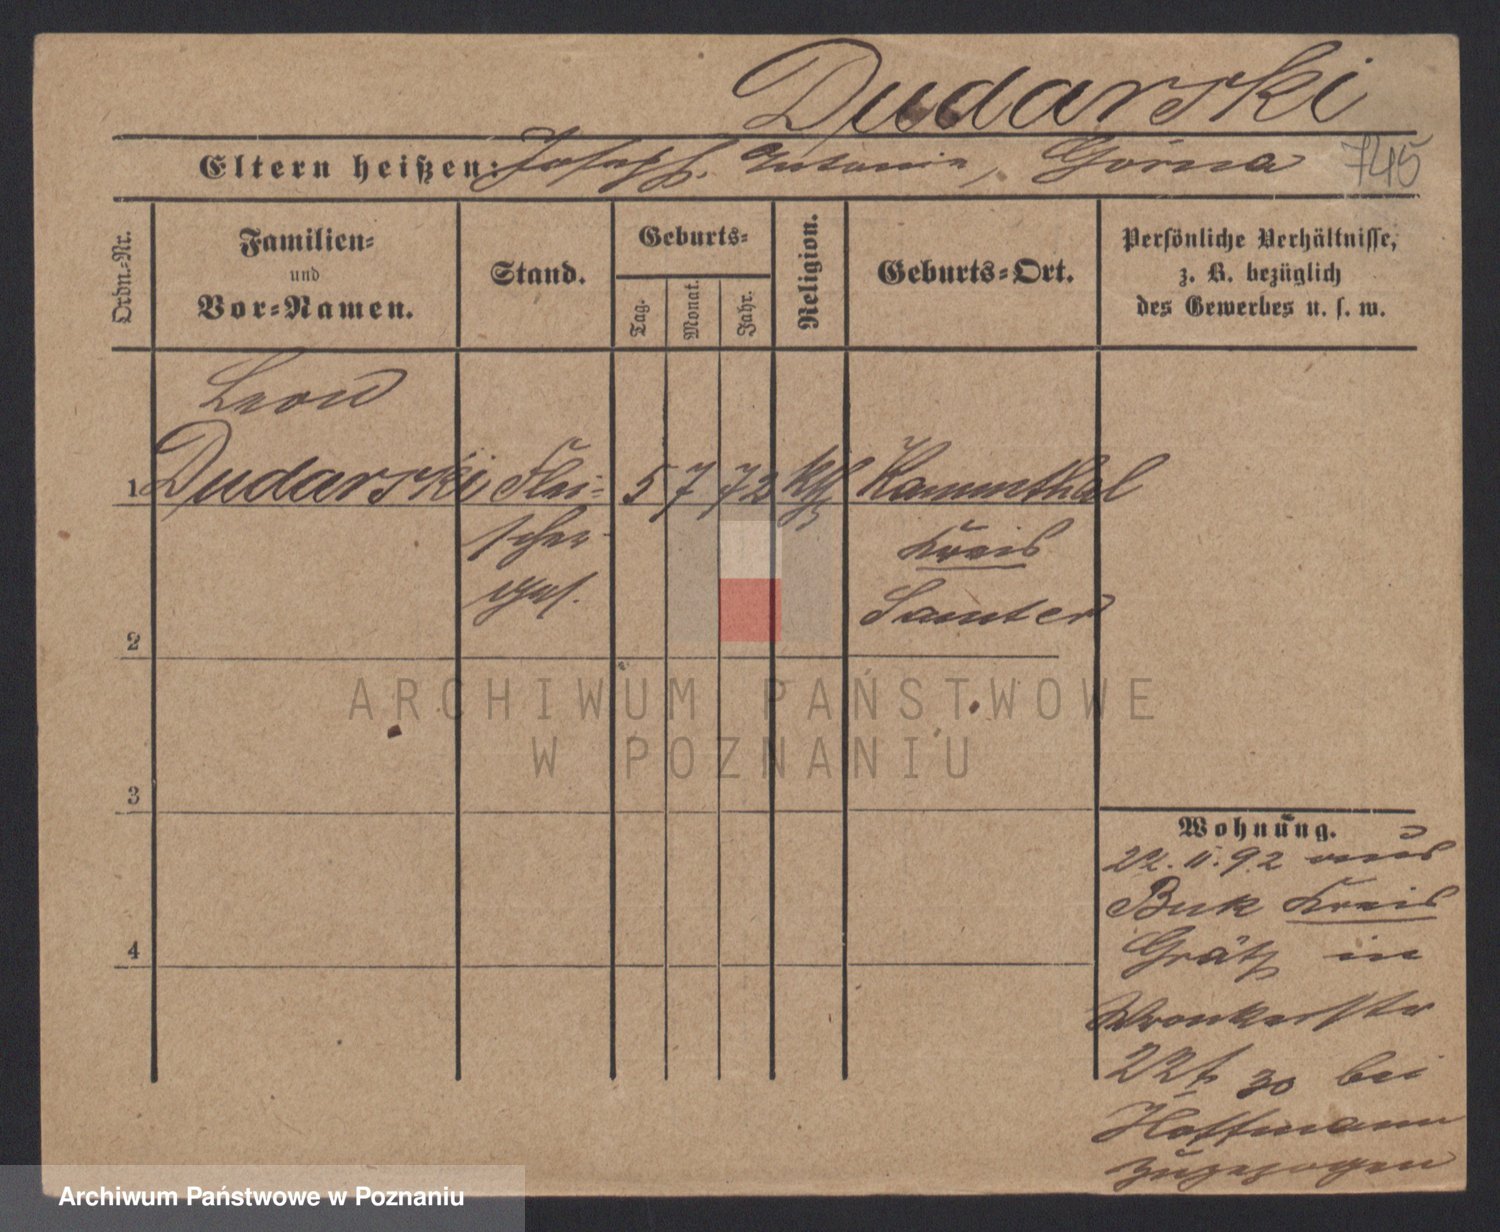 Dudarski
Eltern heißen: Joseph. Antonie, Górna
745
Ordn.-Nr.
Familien-
und
Vor-Namen.
Stand.
Geburts-
Tag.
Monat.
Jahr.
Religion.
Geburts-Ort.
Persönliche Verhältnisse,
z. B. bezüglich
des Gewerbes u. s. w.
Leon
1 Dudarski Flei- 5 7 72 kth Kammthal
scher- Kreis
ges. Samter
2
ARCHIWUM PAŃSTWOWE
W POZNANIU
3
Wohnung.
22. II. 92 aus
Buk Kreis
4
Grätz in
Wronkerstr
22 30 bei
Hoffmann
zugezogen
Archiwum Państwowe w Poznaniu